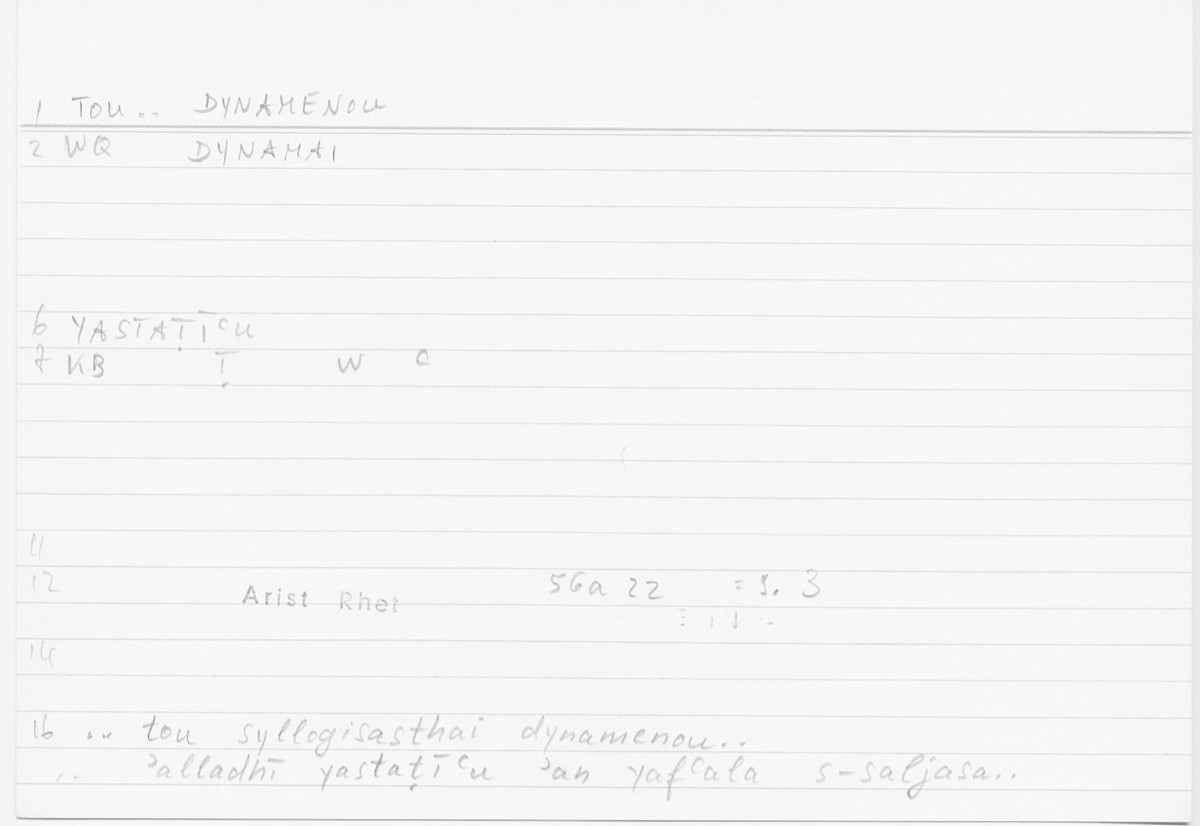 1 TOU .. DYNAMENOU
2 WQ DYNAMAI
6 YASTAṬĪʿU
7 KB Ṭ W ʿ
11
12 Arist Rhet 56a 22 = 9. 3
14
16 .. tou syllogisasthai dynamenou..
.. ʾalladhī yastaṭīʿu ʾan yafʿala s-saljasa..